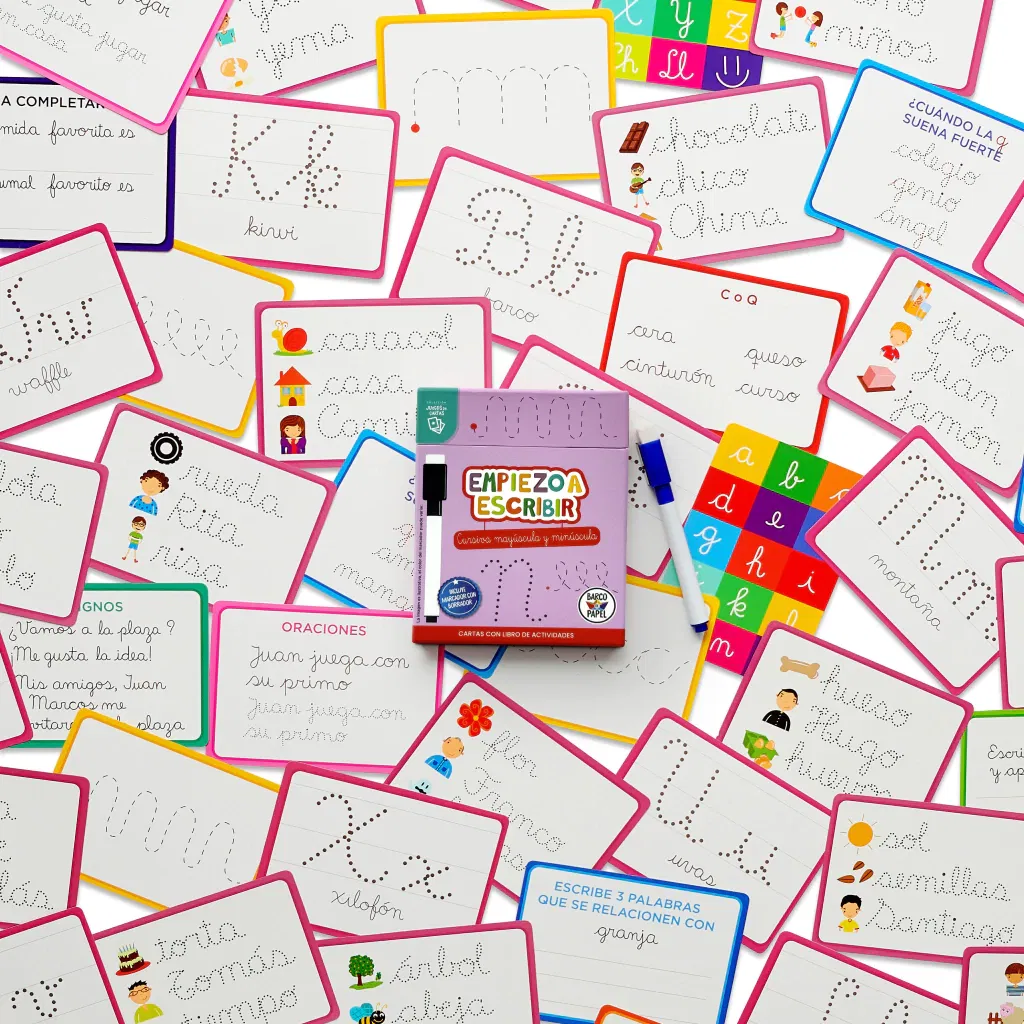 gusta jugar
en casa
gema
X Y Z
Ch Ll
niños
A COMPLETAR
mida favorita es
animal favorito es
K k
kiwi
B b
barco
chocolate
chico
China
¿CUÁNDO LA g
SUENA FUERTE
colegio
genio
ángel
W w
waffle
caracol
casa
C o Q
cera
cinturón
queso
curso
jugo
Juan
jamón
rueda
Rita
COLECCIÓN
JUEGOS DE
CARTAS
EMPIEZO A
ESCRIBIR
Cursiva mayúscula y minúscula
INCLUYE
MARCADOR CON
BORRADOR
BARCO
DE
PAPEL
CARTAS CON LIBRO DE ACTIVIDADES
a b
d e
g h i
k
m
M m
montaña
¿Vamos a la plaza?
¡Me gusta la idea!
Mis amigos, Juan
Marcos me
plaza
ORACIONES
Juan juega con
su primo
Juan juega con
su primo
hueso
Hugo
huevo
flor
Franco
U u
uvas
X x
xilofón
sol
semillas
Santiago
ESCRIBE 3 PALABRAS
QUE SE RELACIONEN CON
granja
torta
Tomás
tiempo
árbol
abeja